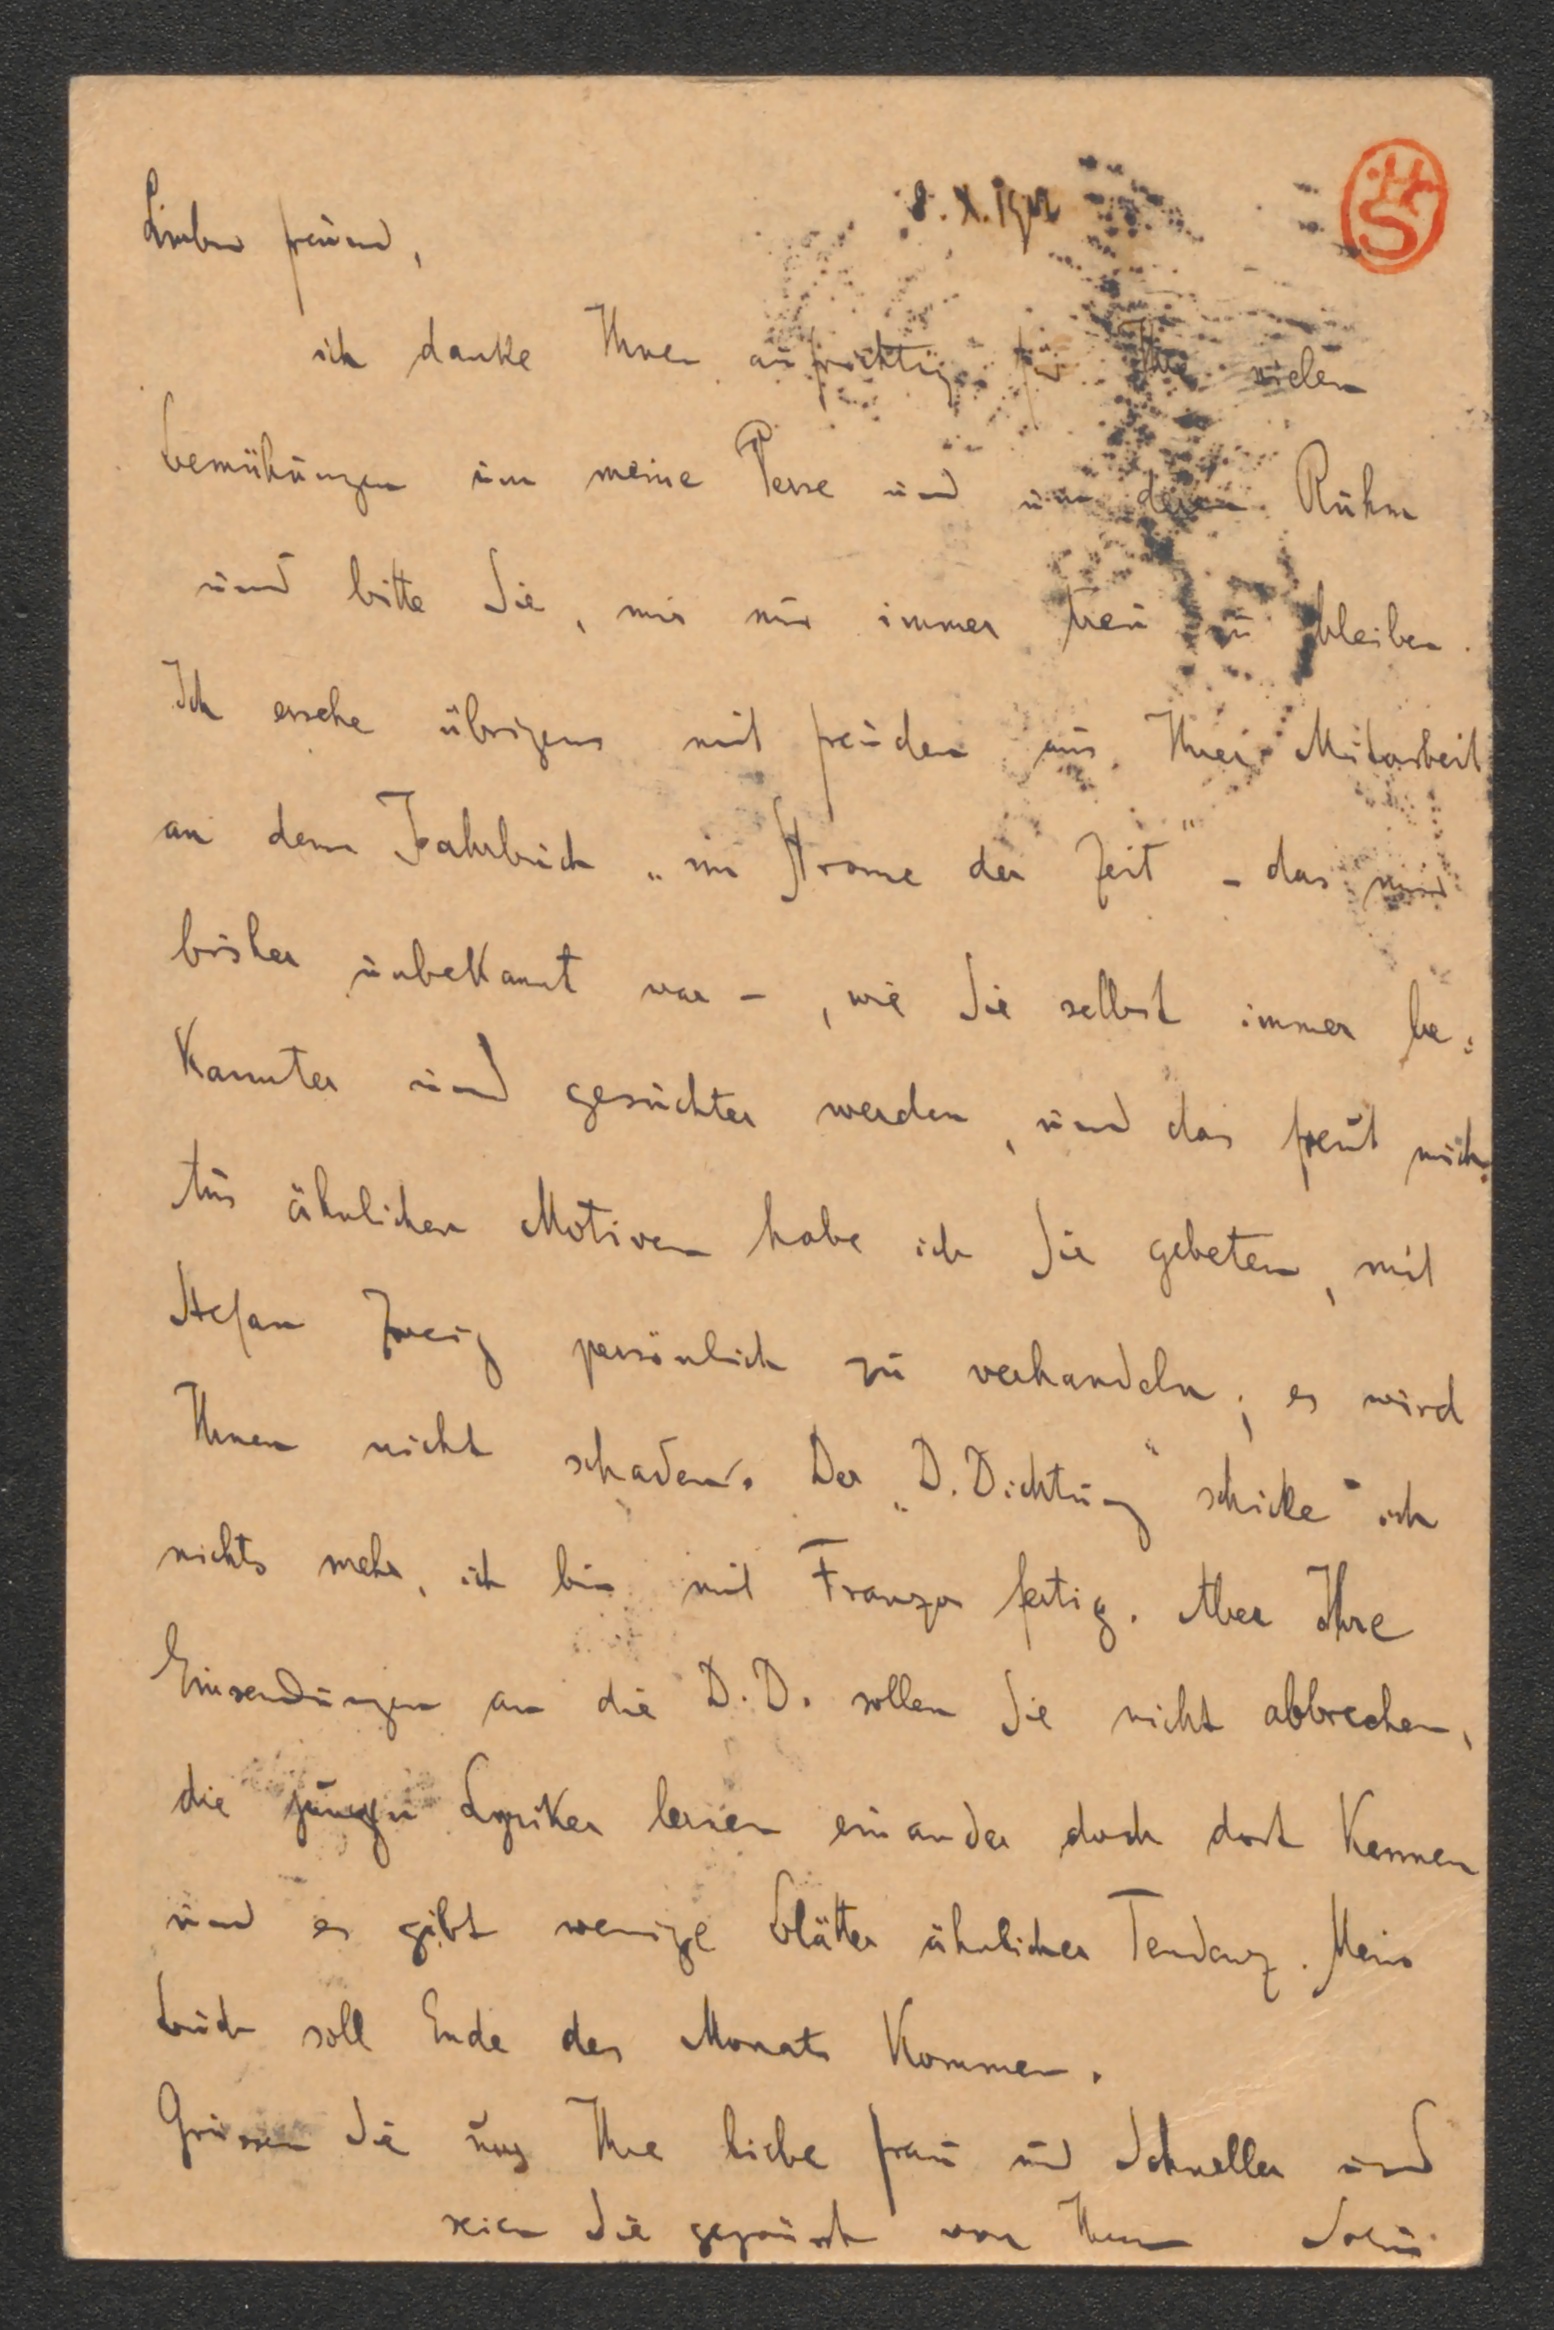 8. X. 1902
HS
Lieber Freund,
ich danke Ihnen aufrichtig für Ihre vielen
Bemühungen um meine Verse und um deren Ruhm
und bitte Sie, mir nur immer treu zu bleiben.
Ich ersehe übrigens mit Freuden aus Ihrer Mitarbeit
an dem Jahrbuch „im Strome der Zeit" – das mir
bisher unbekannt war –, wie Sie selbst immer be=
kannter und gesuchter werden, und das freut mich.
Aus ähnlichen Motiven habe ich Sie gebeten, mit
Stefan Zweig persönlich zu verhandeln; es wird
Ihnen nicht schaden. Der „D. Dichtung" schicke ich
nichts mehr, ich bin mit Franzos fertig. Aber Ihre
Einsendungen an die D. D. sollen Sie nicht abbrechen,
die jungen Lyriker lernen einander doch dort kennen
und es gibt wenige Blätter ähnlicher Tendenz. Mein
Buch soll Ende des Monats kommen.
Grüssen Sie Ihre liebe Frau und Schneller und
seien Sie gegrüsst von Ihrem